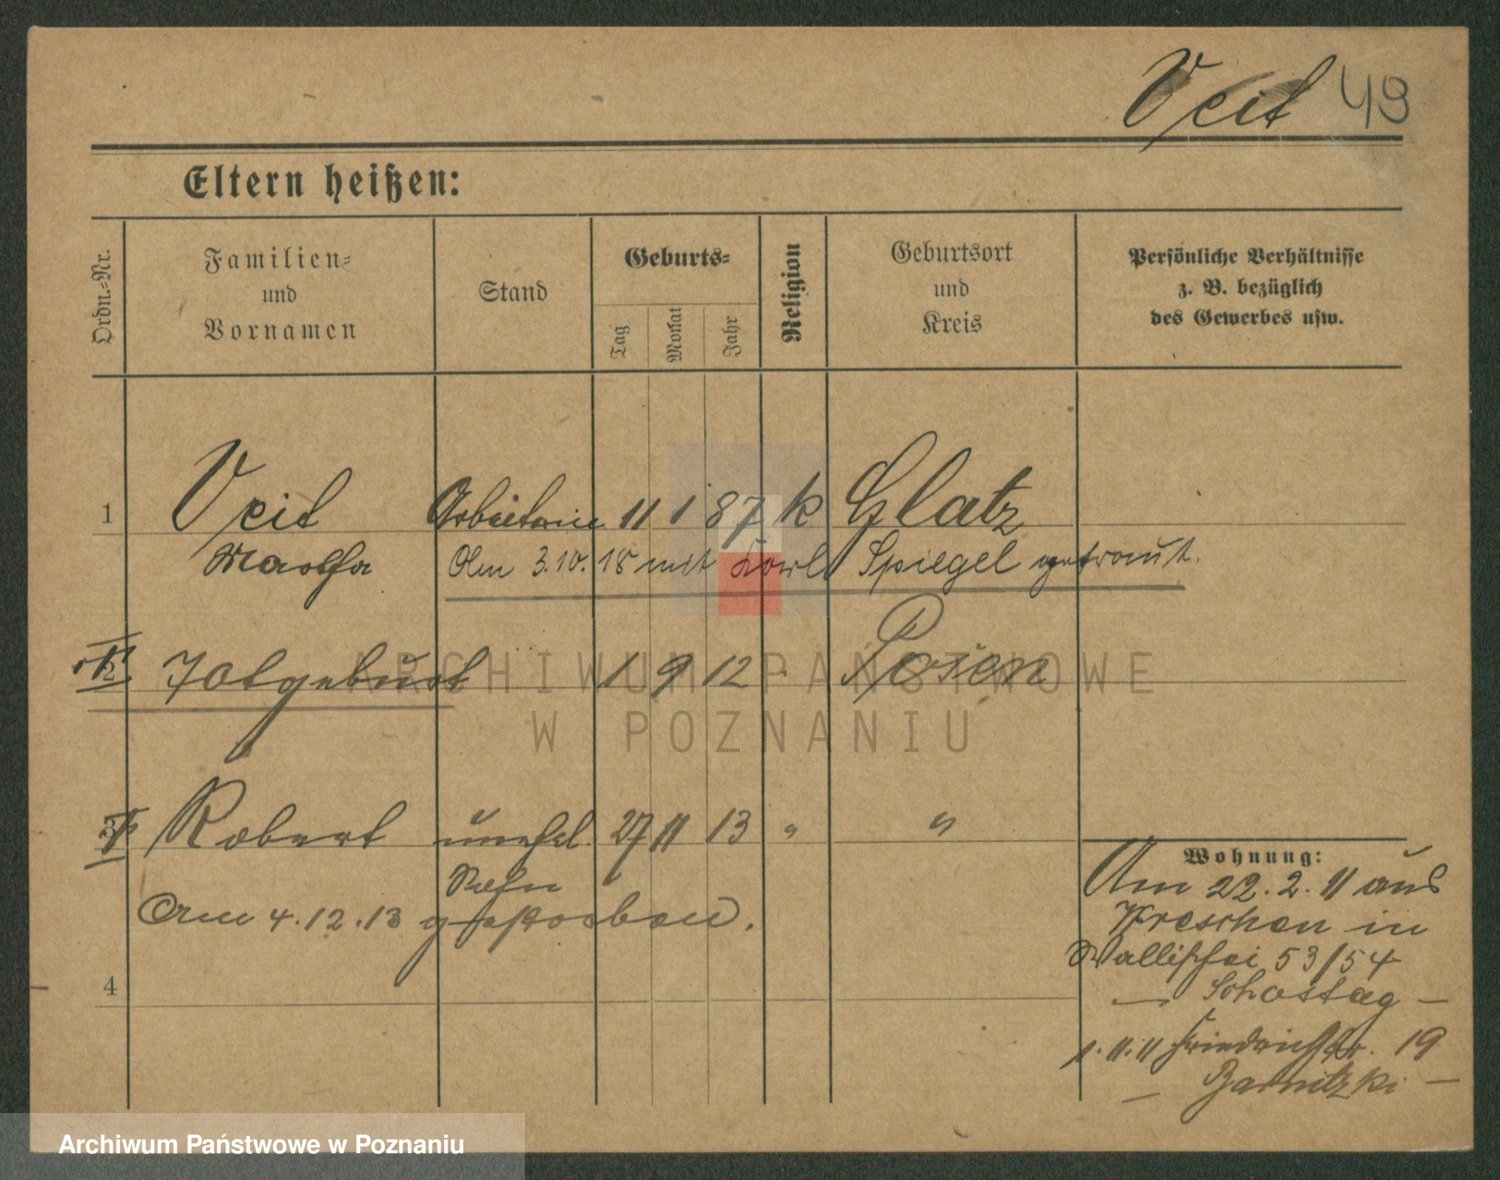 Veit 49
Eltern heißen:
Ordn.-Nr.
Familien- und Vornamen
Stand
Geburts-
Tag
Monat
Jahr
Religion
Geburtsort und Kreis
Persönliche Verhältnisse z. B. bezüglich des Gewerbes usw.
1 Veit Arbeiterin 11 1 87 k Glatz
Martha Am 3.10.18 mit Karl Spiegel getraut.
2 Totgeburt 1 9 12 Posen
3 Robert unehel. 27 11 13 " "
Sohn
Am 4.12.13 gestorben.
4
Wohnung:
Am 22.2.11 aus
Wreschen in
Wallischei 53/54
— Schostag —
1.11.11 Friedrichstr. 19
— Barnitzki —
ARCHIWUM PAŃSTWOWE
W POZNANIU
Archiwum Państwowe w Poznaniu